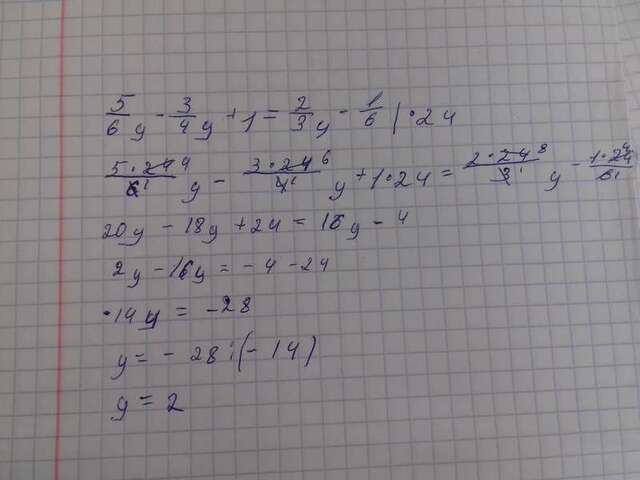 5/6 y - 3/4 y + 1 = 2/3 y - 1/6 | · 24
5 · 24 4/6 1 y - 3 · 24 6/4 1 y + 1 · 24 = 2 · 24 8/3 1 y - 1 · 24 4/6 1
20y - 18y + 24 = 16y - 4
2y - 16y = - 4 - 24
- 14y = - 28
y = - 28 : (- 14)
y = 2